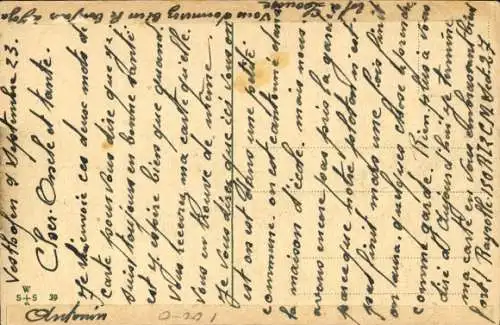 Vous donnerez bien le bonjour à
et à Louise
9 Septembre 23.
Cher Oncle et tante.
Je vous envoie ces deux mots de
carte pour vous dire que je
suis toujours en bonne santé
et j'espère bien que quand
vous recevrez ma carte qu'elle
vous en trouve de même.
Je vous direz que ici
et on est dans une petite
commune. on est cantonné dans
la maison d'école. mais nous
avons encore pas pris la garde
parceque notre peloton n'est
pas finit mais une fois finit
on aura quelques chose à prendre
comme garde. Rien plus à vous
dire aujourd'hui je termine
ma carte en vous embrassant bien
fort!
W
S+S 39
Antonin